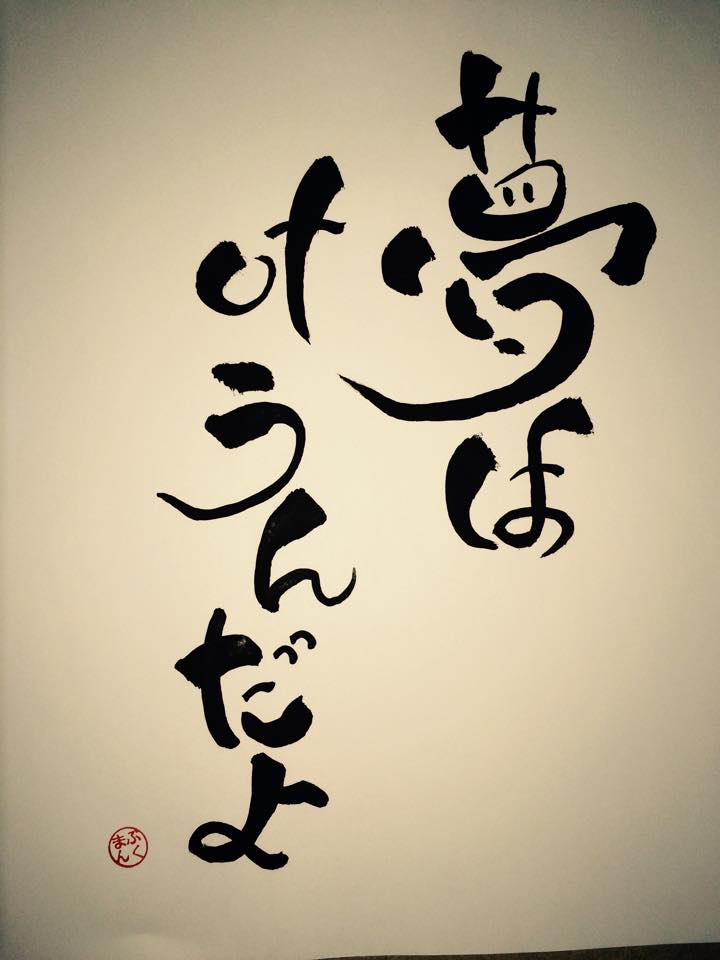 夢は
叶うんだよ
ふくまん